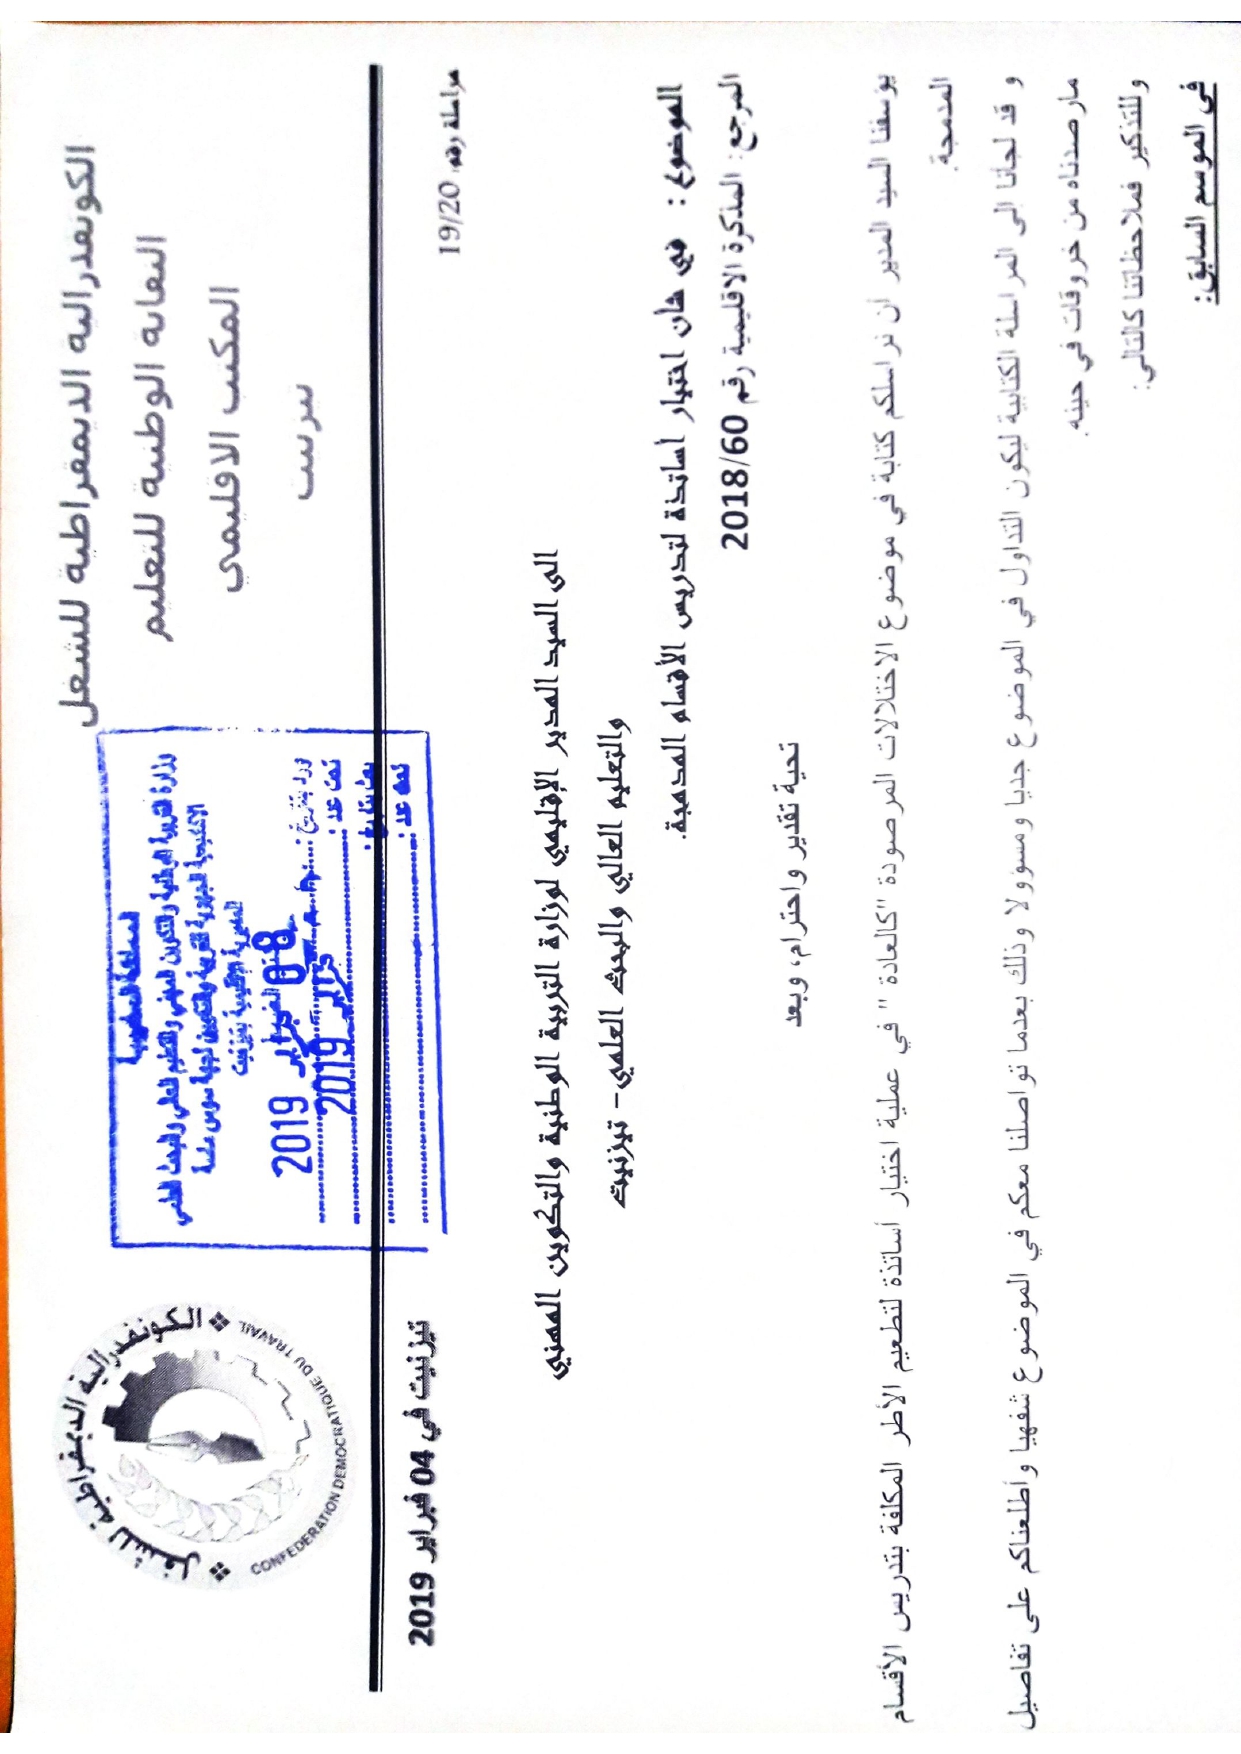 الكونفدرالية الديمقراطية للشغل
النقابة الوطنية للتعليم
المكتب الاقليمي
تيزنيت
الكونفدرالية الديمقراطية للشغل
CONFEDERATION DEMOCRATIQUE DU TRAVAIL
المملكة المغربية
وزارة التربية الوطنية والتكوين المهني والتعليم العالي والبحث العلمي
الاكاديمية الجهوية للتربية والتكوين لجهة سوس ماسة
المديرية الاقليمية بتيزنيت
08 فبراير 2019
ورد بتاريخ:
فبراير 2019
تحت عدد:
بعث بتاريخ:
تحت عدد:
مراسلة رقم: 19/20
تيزنيت في 04 فبراير 2019
الى السيد المدير الإقليمي لوزارة التربية الوطنية والتكوين المهني
والتعليم العالي والبحث العلمي- تيزنيت
الموضوع : في شان اختيار اساتذة لتدريس الأقسام المدمجة.
المرجع: المذكرة الاقليمية رقم 2018/60
تحية تقدير واحترام، وبعد
يؤسفنا السيد المدير ان نراسلكم كتابة في موضوع الاختلالات المرصودة "كالعادة " في عملية اختيار أساتذة لتطعيم الأطر المكلفة بتدريس الأقسام
المدمجة.
و قد لجانا الى المراسلة الكتابية ليكون التداول في الموضوع جديا ومسؤولا وذلك بعدما تواصلنا معكم في الموضوع شفهيا وأطلعناكم على تفاصيل
مارصدناه من خروقات في حينه.
وللتذكير فملاحظاتنا كالتالي:
في الموسم السابق: